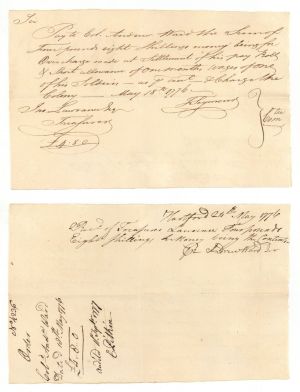 Sir
Pay to Col. Andrew Ward the Sum of
four pounds eight Shillings money being for
Overcharge made at Settlement of his pay Roll
& short allowance of one months wages of one
of his Soldiers — as & Charge the
Colony May 18th 1776
Jno Lawrence Esq T Seymour
Treasurer Com
£4.8.0
Hartford 24th May 1776
Recd of Treasurer Lawrence four pounds
Eight shillings Money being the Contents
Andw Ward Jr
Order
Colo Andw Ward
Dated 18th May 1776
£4.8.0
1777